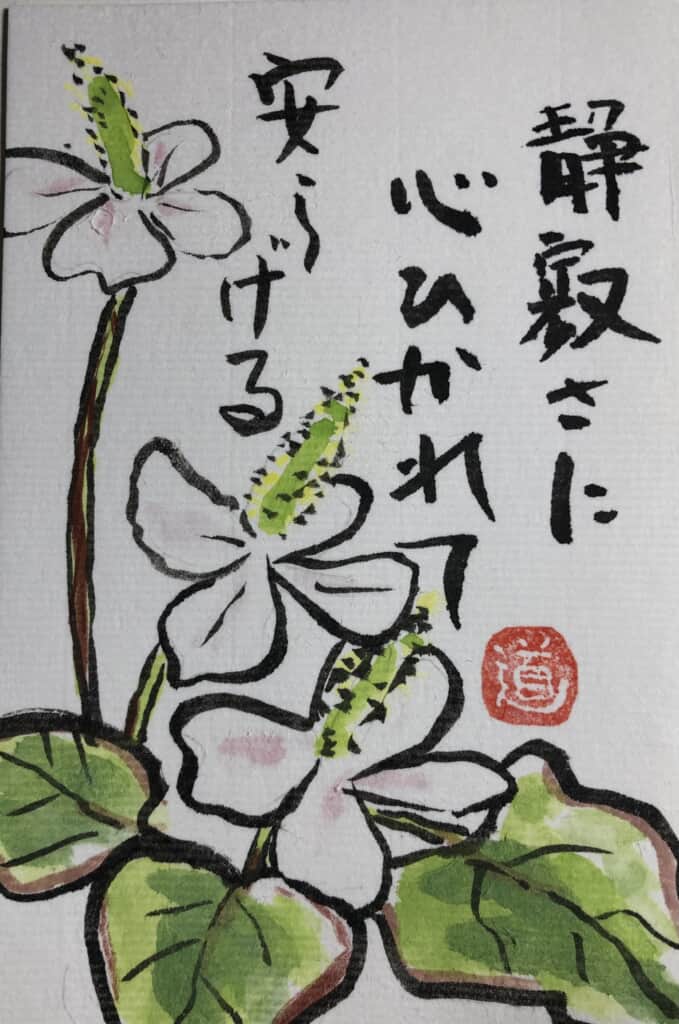 静寂さに
心ひかれて
安らげる
道